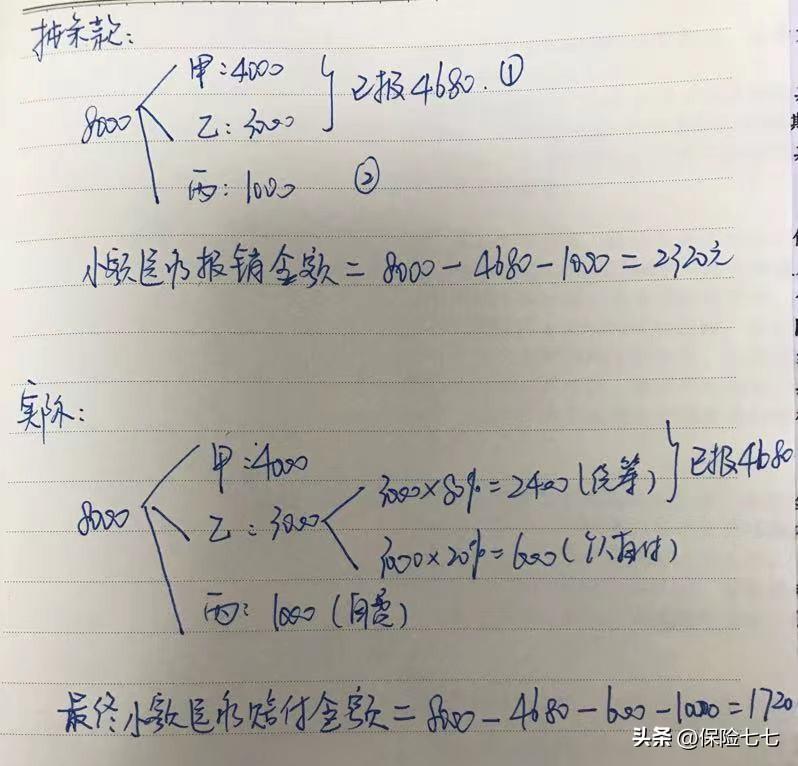 抻条款:
甲:4000
8000
乙:3000
已报4680. ①
丙:1000 ②
小额医疗报销金额=8000-4680-1000=2320元
实际:
甲:4000
8000
乙:3000
3000×80%=2400(统筹)
已报4680
3000×20%=600(个人自付)
丙:1000(自费)
最终小额医疗赔付金额=8000-4680-600-1000=1720
头条 @保险七七